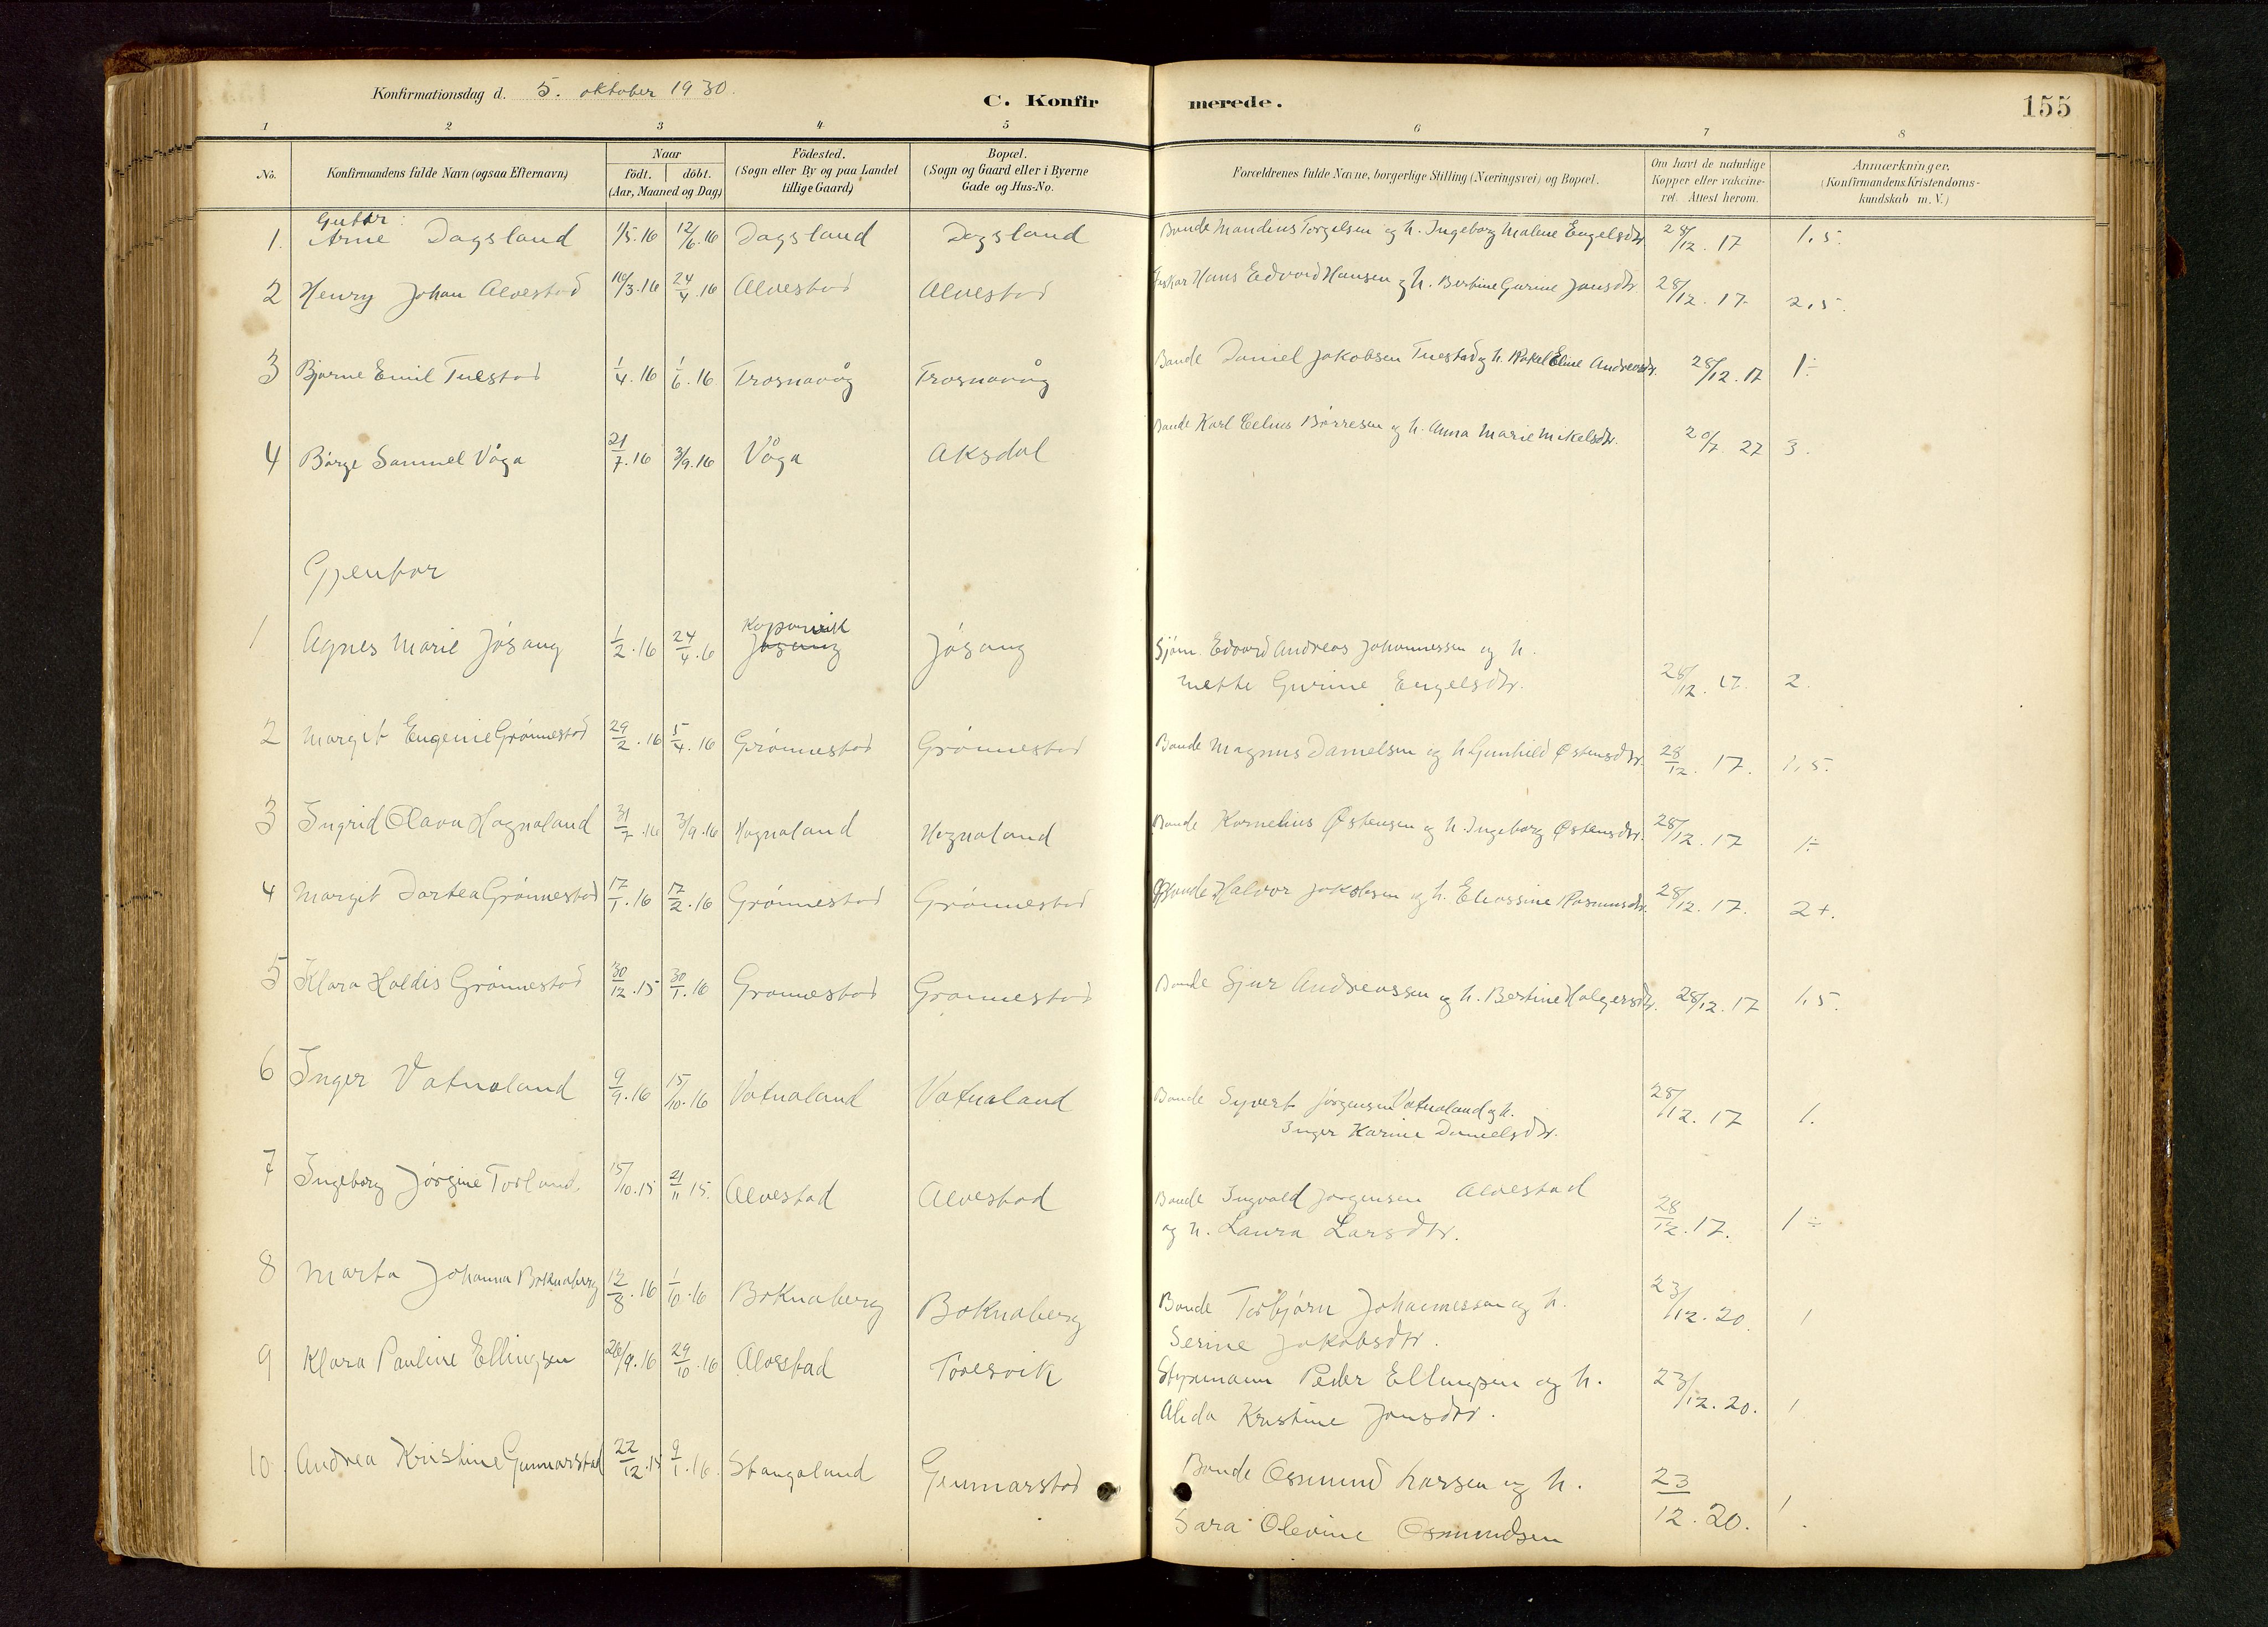 Konfirmationsdag d. 5. oktober 1930.
C. Konfirmerede.
155
1 2 3 4 5 6 7 8
No. Konfirmandens fulde Navn (ogsaa Efternavn) Naar födt. döbt. (Aar, Maaned og Dag) Födested. (Sogn eller By og paa Landet tillige Gaard) Bopæl. (Sogn og Gaard eller i Byerne Gade og Hus-No. Forældrenes fulde Navne, borgerlige Stilling (Næringsvei) og Bopæl. Om havt de naturlige Kopper eller vakcineret. Attest herom. Anmærkninger. (Konfirmandens Kristendomskundskab m. V.)
Guttar:
1. Arne Dagsland 1/5.16 12/6.16 Dagsland Dagsland Bonde Mandius Torgilsen og h. Ingeborg Malene Engelsdtr. 28/12.17 1,5.
2 Henry Johan Alvestad 10/3.16 24/4.16 Alvestad Alvestad Hans Edvard Hansen og h. Bertine Gurine Jansdtr. 28/12.17 2,5.
3 Bjarne Emil Tuestad 1/4.16 1/6.16 Trosnavåg Trosnavåg Bonde Daniel Jakobsen Tuestad og h. Rakel Eline Andreasdtr. 28/12.17 1÷
4 Børge Samuel Våga 21/7.16 3/9.16 Våga Aksdal Bonde Karl Børresen og h. Anna Marie Mikelsdtr. 20/7 27 3.
Gjentor
1 Agnes Marie Jøsang 1/2.16 24/4.16 Kopervik Jøsang Jøsang Sjøm. Edvard Andreas Johannessen og h.
Mette Gurine Engelsdtr. 28/12.17. 2.
2 Margit Eugenie Grønnestad 29/2.16 5/4.16 Grønnestad Grønnestad Bonde Magnus Danielsen og h. Gunhild Østensdtr. 28/12.17. 1,5.
3 Ingrid Olava Hognaland 31/7.16 3/9.16 Hognaland Hognaland Bonde Kornelius Østensen og h. Ingeborg Østensdtr. 28/12.17 1÷
4 Margit Dortea Grønnestad 17/1.16 17/2.16 Grønnestad Grønnestad Bonde Halvor Jakobsen og h. Eliassine Rasmusdtr. 28/12.17. 2+.
5 Klara Haldis Grønnestad 30/12.15 30/1.16 Grønnestad Grønnestad Bonde Sjur Andreassen og h. Bertine Holgersdtr. 28/12.17 1,5.
6 Inger Vatnaland 9/9.16 15/10.16 Vatnaland Vatnaland Bonde Syvert Jørgensen Vatnaland og h.
Inger Karine Danielsdtr. 28/12.17 1.
7 Ingeborg Jørgine Torland. 15/10.15 21/11 15. Alvestad Alvestad Bonde Ingvald Jørgensen Alvestad
og h. Laura Larsdtr. 28/12.17. 1÷
8 Marta Johanna Boknaberg 12/8.16 1/10.16 Boknaberg Boknaberg Bonde Torbjørn Johannessen og h.
Serine Jakobsdtr. 23/12.20. 1
9 Klara Pauline Ellingsen 26/9.16 29/10.16 Alvestad Tøresvik Styrmann Peder Ellingsen og h.
Alida Kristine Jonsdtr. 23/12.20. 1
10 Andrea Kristine Gunnarstad 22/12.15 9/1.16. Stangaland Gunnarstad Bonde Osmund Larsen og h.
Sara Olevine Osmundsen 23/12.20. 1.